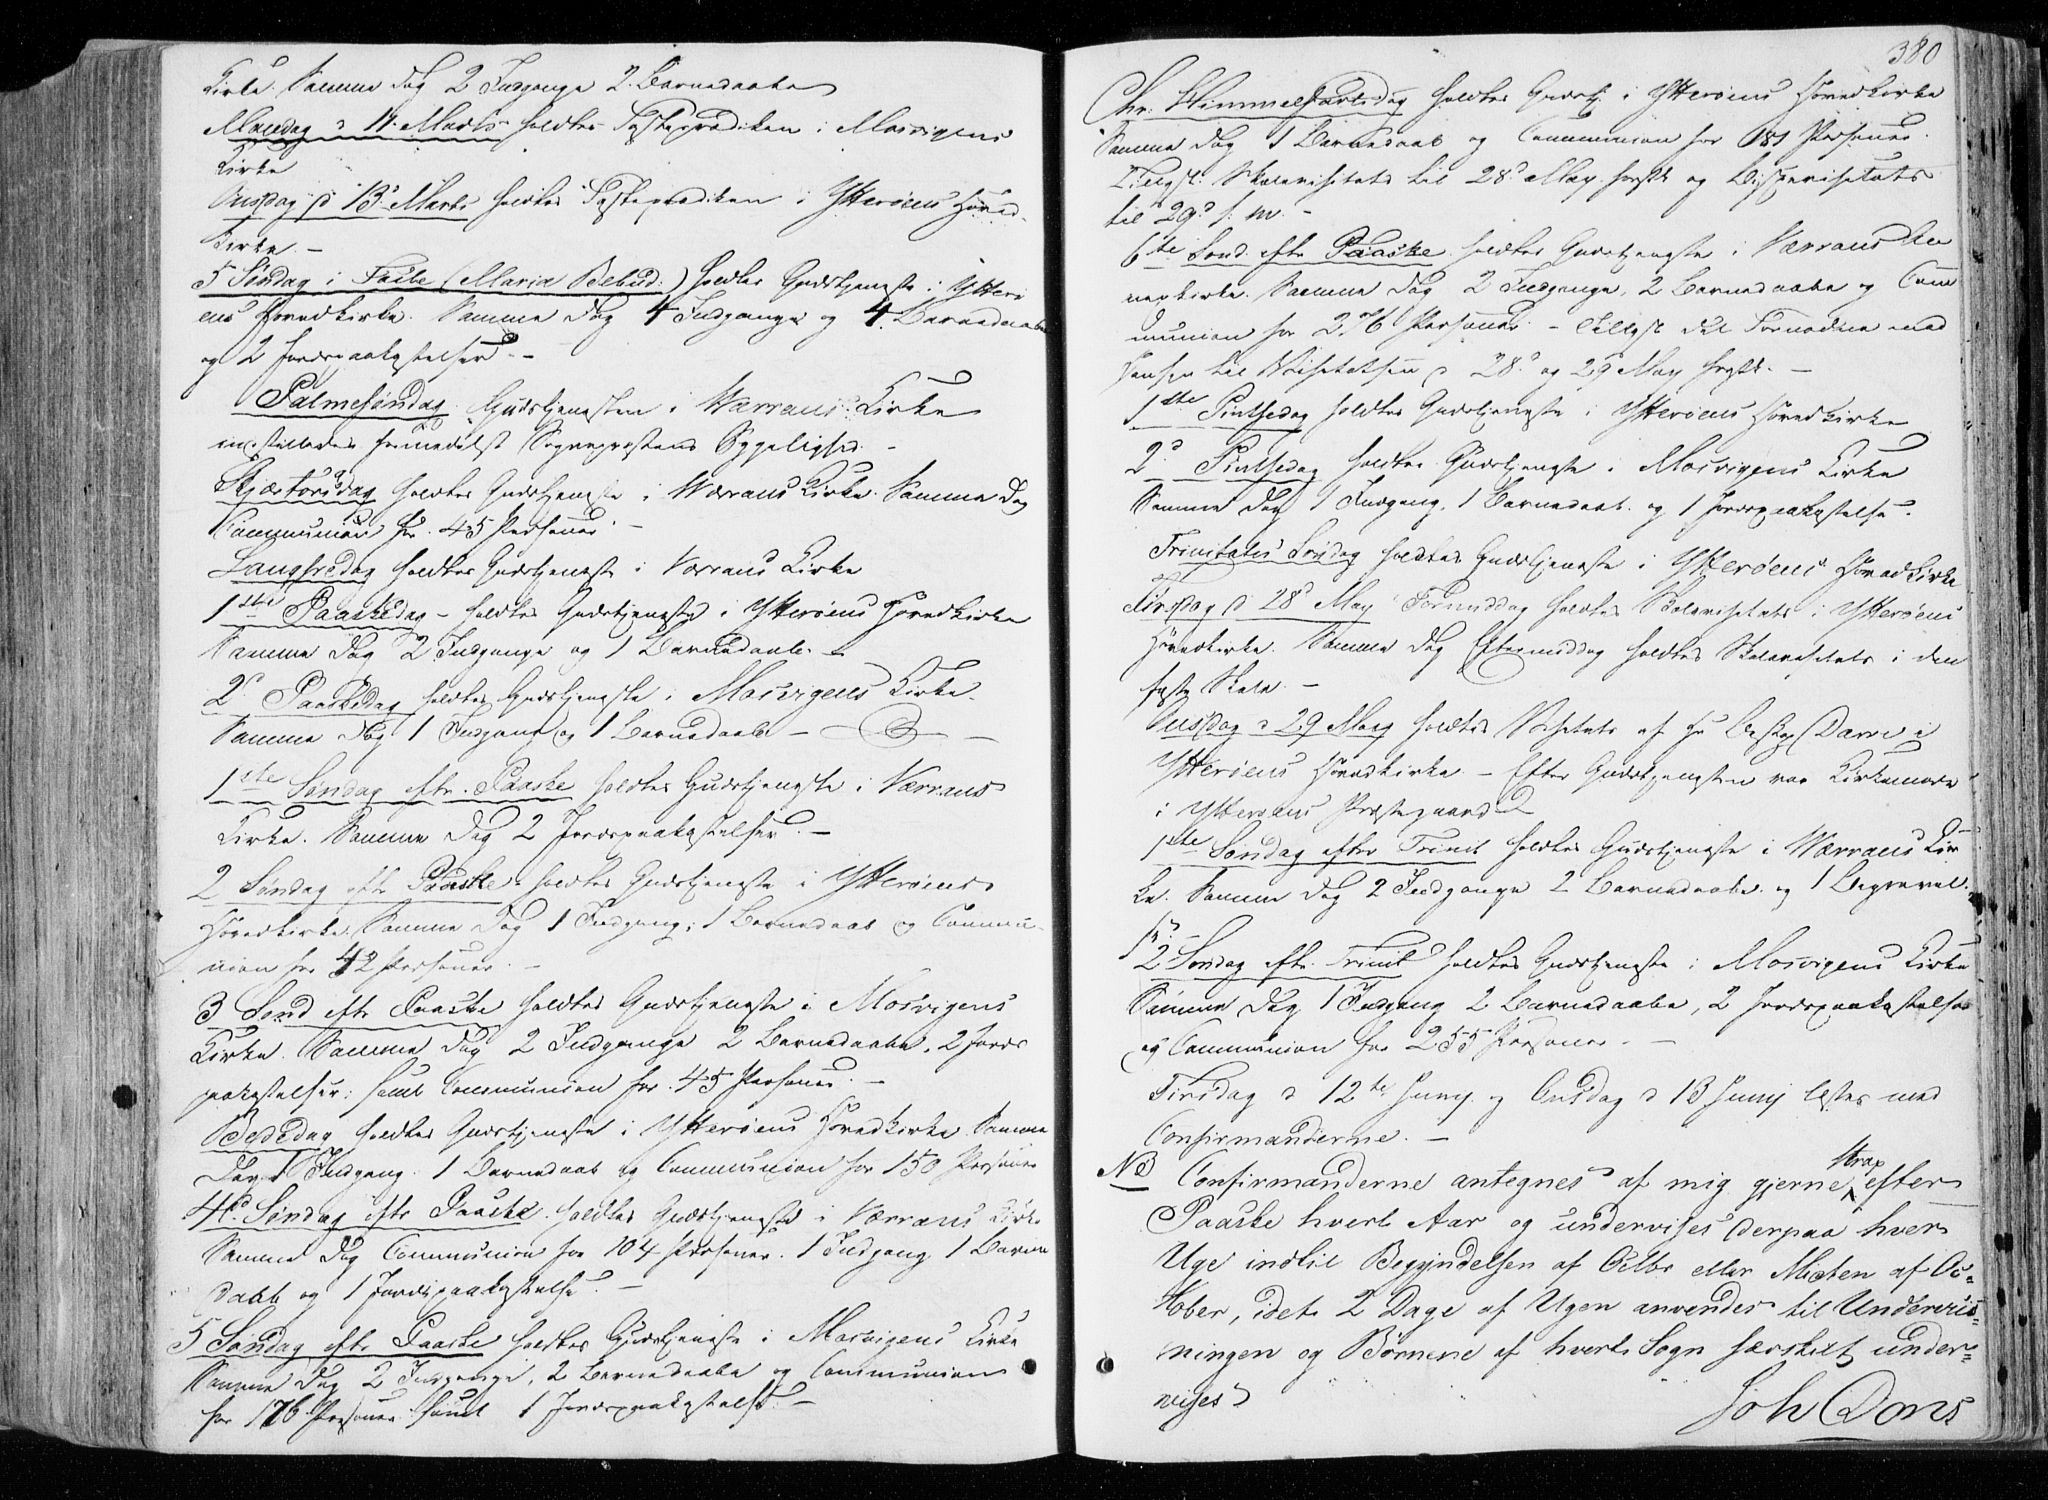 Kirke. Samme Dag 2 Indgange 2 Barnedaabe
Mandag d 11. Marts holdtes Fasteprædiken i Mosvigens
Kirke
Onsdag d 13 Marts holdtes Fasteprædiken i Ytterøens Hoved-
kirke. –
5 Søndag i Faste (Mariæ Bebud:) holdtes Gudstjeneste i Ytterø
ens Hovedkirke. Samme Dag 4 Indgange og 4 Barnedaabe
og 2 Jordspaakastelser. –
Palmesøndag Gudstjenesten i Værrans Kirke
indstilledes formedelst Sognepræstens Sygelighed –
Skjærtorsdag holdtes Gudstjeneste i Værrans Kirke. Samme Dag
Communion for 45 Personer –
Langfredag holdtes Gudstjeneste i Værrans Kirke
1ste Paaskedag – holdtes Gudstjeneste i Ytterøens Hovedkirke
Samme Dag 2 Indgange og 1 Barnedaab. –
2d Paaskedag holdtes Gudstjeneste i Mosvigens Kirke.
Samme Dag 1 Indgang og 1 Barnedaab –
1ste Søndag eftr. Paaske holdtes Gudstjeneste i Værrans
Kirke. Samme Dag 2 Jordspaakastelser. –
2 Søndag eftr Paaske holdtes Gudstjeneste i Ytterøens
Hovedkirke. Samme Dag 1 Indgang, 1 Barnedaab og Commu-
nion for 42 Personer. –
3 Sønd eftr Paaske holdtes Gudstjeneste i Mosvigens
Kirke. Samme Dag 2 Indgange 2 Barnedaabe, 2 Jords
paakastelser, samt Communion for 45 Personer. –
Bededag holdtes Gudstjeneste i Ytterøens Hovedkirke Samme
Dag 1 Indgang. 1 Barnedaab og Communion for 150 Personer
4d Søndag eftr Paaske holdtes Gudstjeneste i Værrans Kirke
Samme Dag Communion for 104 Personer. 1 Indgang 1 Barne
daab og 1 Jordspaakastelse. –
5 Søndag eftr Paaske holdtes Gudstjeneste i Mosvigens Kirke
Samme Dag 2 Indgange, 2 Barnedaabe og Communion
for 176 Personer samt 1 Jordspaakastelse. –
380
Chr: Himmelfartsdag holdtes Gudstj. i Ytterøens Hovedkirke
Samme Dag 1 Barnedaab og Communion for 181 Personer.
Tillyst Skolevisitats til 28d May førstk og Bispevisitats
til 29d s: M. –
6te Sønd. eftr Paaske holdtes Gudstjeneste i Værrans An
nexkirke. Samme Dag 2 Indgange, 2 Barnedaabe og Com
munion for 276 Personer. – Tillyst det Fornødne med
Hensyn til Visitatsen d 28d og 29 May førstk. –
1ste Pintsedag holdtes Gudstjeneste i Ytterøens Hovedkirke
2d Pintsedag holdtes Gudstjeneste i Mosvigens Kirke
Samme Dag 1 Indgang, 1 Barnedaab og 1 Jordspaakastelse.
Trinitatis Søndag holdtes Gudstjeneste i Ytterøens Hovedkirke
Tirsdag d 28d May Formiddag holdtes Skolevisitats i Ytterøens
Hovedkirke. Samme Dag Eftermiddag holdtes Skolevisitats i den
faste Skole. –
Onsdag d 29 May holdtes Visitats af Hr Biskop Darre i
Ytterøens Hovedkirke – Efter Gudstjenesten var Kirkemøde
i Ytterøens Præstegaard
1ste Søndag efter Trinit holdtes Gudstjeneste i Værrans Kir
ke. Samme Dag 2 Indgange 2 Barnedaabe og 1 Begravel.
se. –
2 Søndag eftr. Trinit holdtes Gudstjeneste i Mosvigens Kirke
Samme Dag 1 Indgang 2 Barnedaabe, 2 Jordspaakastelser
og Communion for 255 Personer. –
Tirsdag d 12te Juny og Onsdag d 13 Juny læstes med
Confirmanderne. –
NB Confirmanderne antegnes af mig gjerne strax efter
Paaske hvert Aar og undervises derpaa hver
Uge indtil Begyndelsen af Octbr eller Midten af Oc-
tober, idet 2 Dage af Ugen anvendes til Undervis-
ningen og Børnene af hvert Sogn særskilt under-
vises
Joh Dons